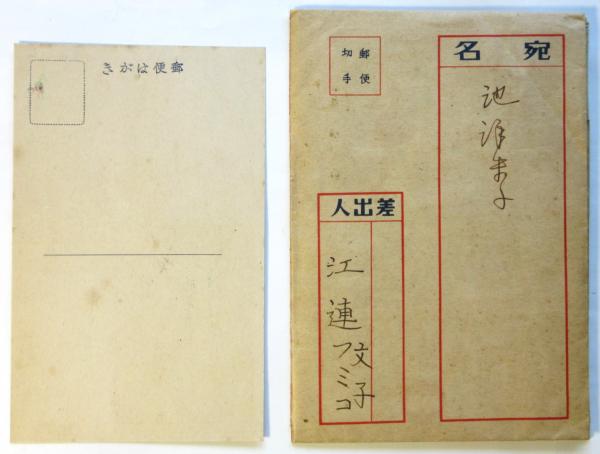 きがは便郵
郵便
切手
名宛
池
子
人出差
江連文子
フミコ